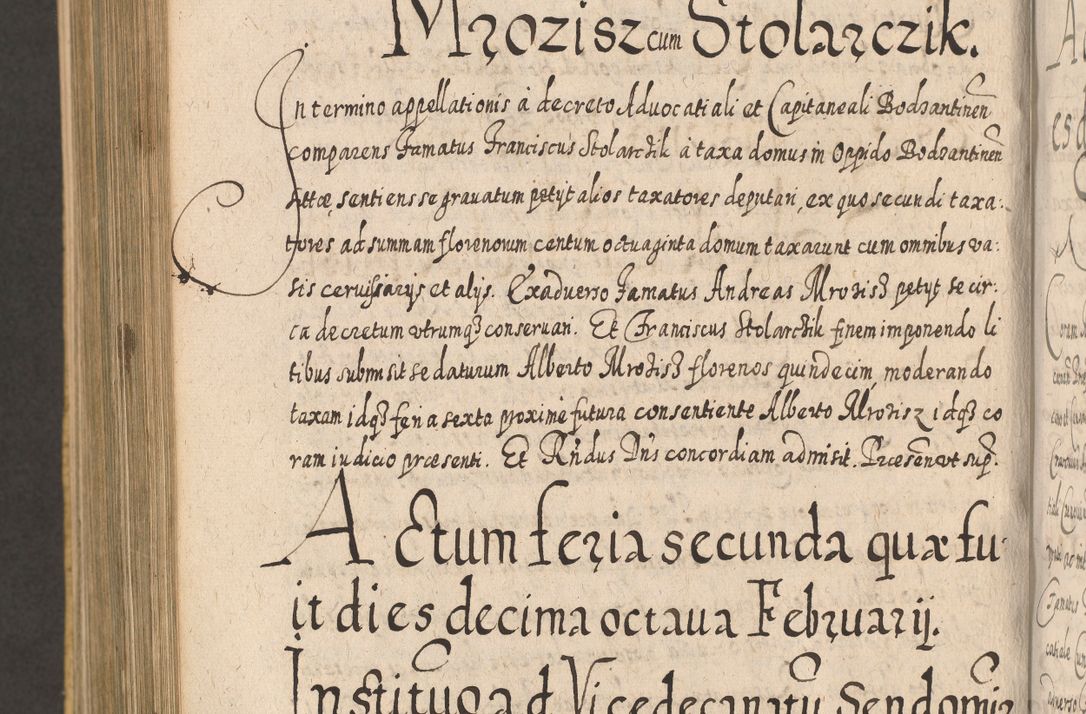 Mrozisz cum Stolarczik.
In termino appellationis à decreto Advocatiali et Capitaneali Bodzantinen̄
comparens Famatus Franciscus Stolarczik à taxa domus in Oppido Bodzantinen̄
sentiens se grauatum petyt alios taxatores deputari, ex quo secundi taxa:
tores ad summam florenorum centum octuaginta domum taxarunt cum omnibus va:
sis ceruisiarijs et alijs. Exaduerso Famatus Andreas Mrozisz petyt se cir:
ca decretum vtrumqz conseruari. Et Franciscus Stolarczik finem imponendo li
tibus submisit se daturum Alberto Mrozisz florenos quindecim, moderando
taxam idqz feria sexta proxime futura consentiente Alberto Mrozisz idqz co
ram iudicio præsenti. Et Rn̄dus Dn̄s concordiam admisit. Præsen̄ vt sup̄.
Actum feria secunda quæ fu:
it dies decima octaua Februarij.
Institutio ad Vicedecanatū Sendomir